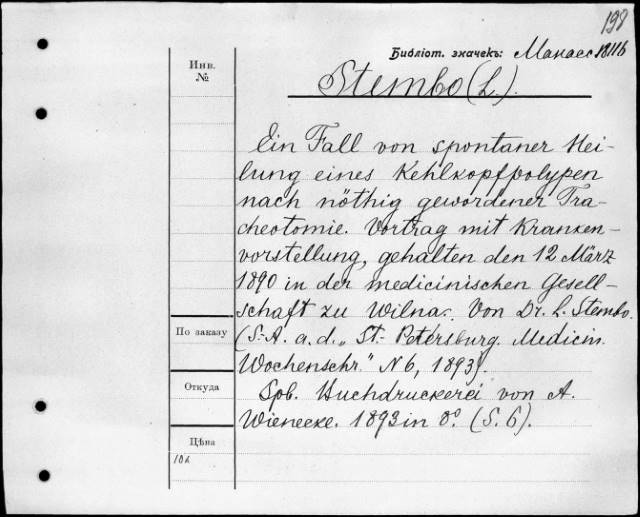 198
Библіот. значекъ: Манасс 18116
Инв.
№
Stembo (L.).
Ein Fall von spontaner Hei-
lung eines Kehlkopfpolypen
nach nöthig gewordener Tra-
cheotomie. Vortrag mit Kranken-
vorstellung, gehalten den 12 März
1890 in der medicinischen Gesell-
schaft zu Wilna. Von Dr. L. Stembo.
(S.-A. a. d. „St.-Petersburg. Medicin.
Wochenschr." N 6, 1893).
Spb. Buchdruckerei von A.
Wienecke. 1893 in 8º. (S. 6).
По заказу
Откуда
Цѣна